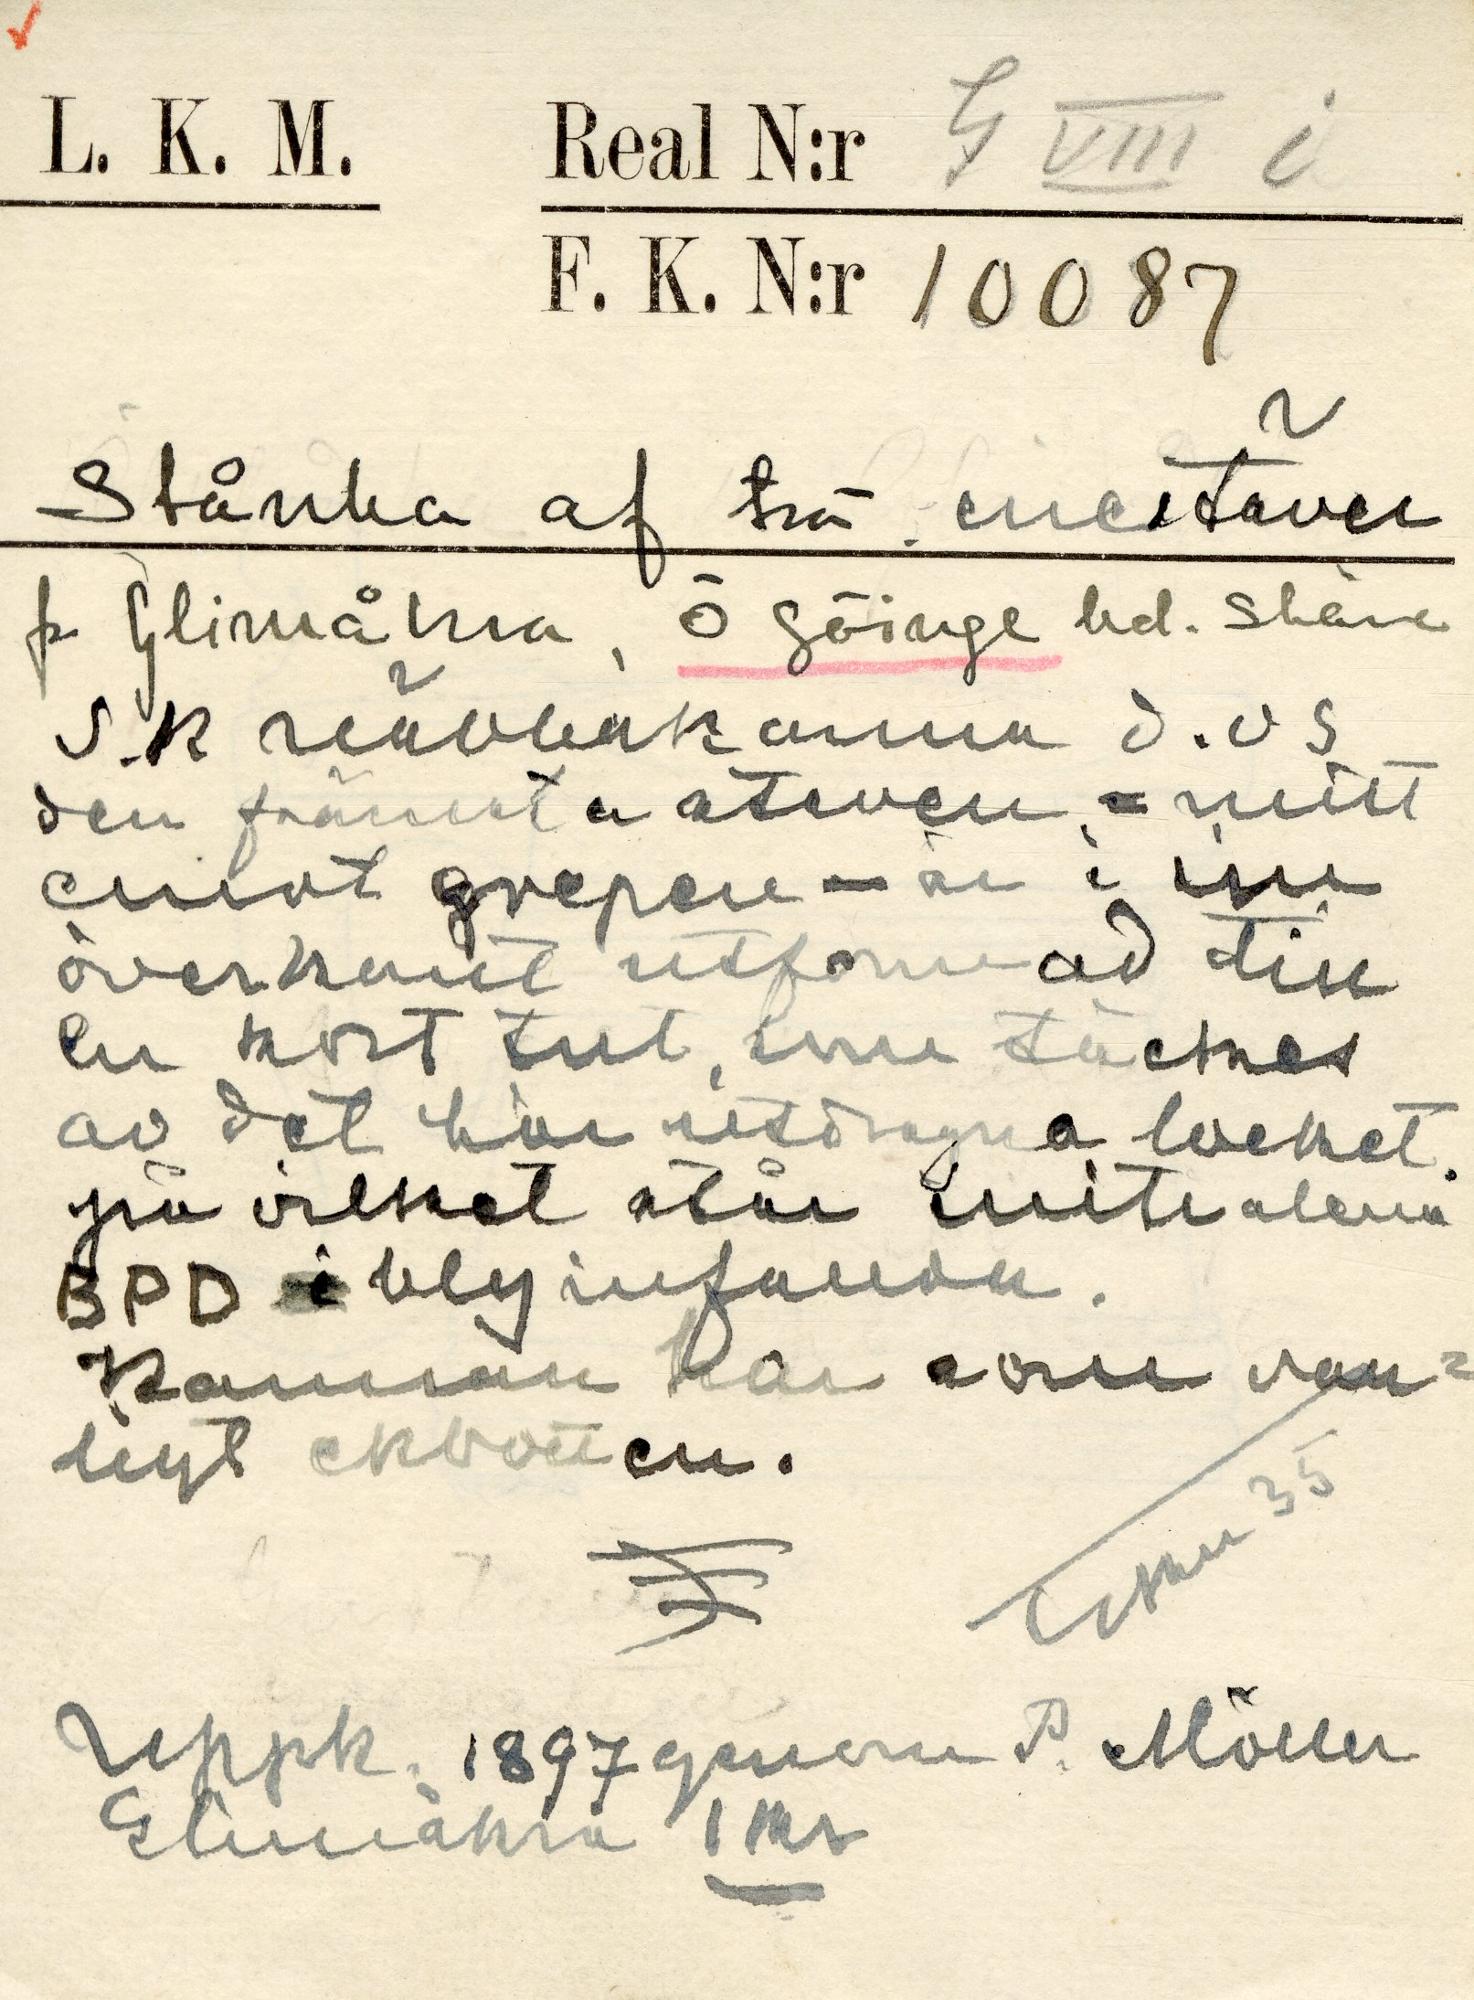 L. K. M. Real N:r G VIII i
F. K. N:r 10087
Stånka af trä enestäver
fr Glimåkra, Ö Göinge hd. Skåne
S.k kanna d.v s
den främsta staven, - mitt
emot grepen - är i sin
överkant utformad till
en kort tut, som täckes
av det här utdragna locket.
på vilket står initialerna
BPD i blyinfattn.
Kannan har som van=
ligt ekbotten.
35
Uppk. 1897 genom P. Möller
Glimåkra 1 Kr